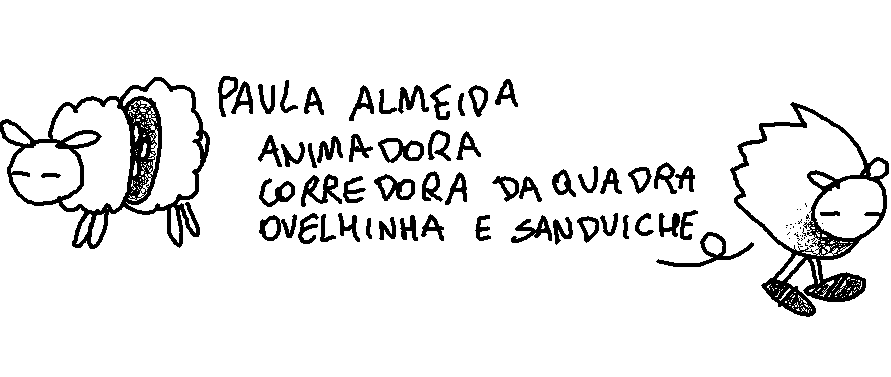 PAULA ALMEIDA
ANIMADORA
CORREDORA DA QUADRA
OVELHINHA E SANDUICHE